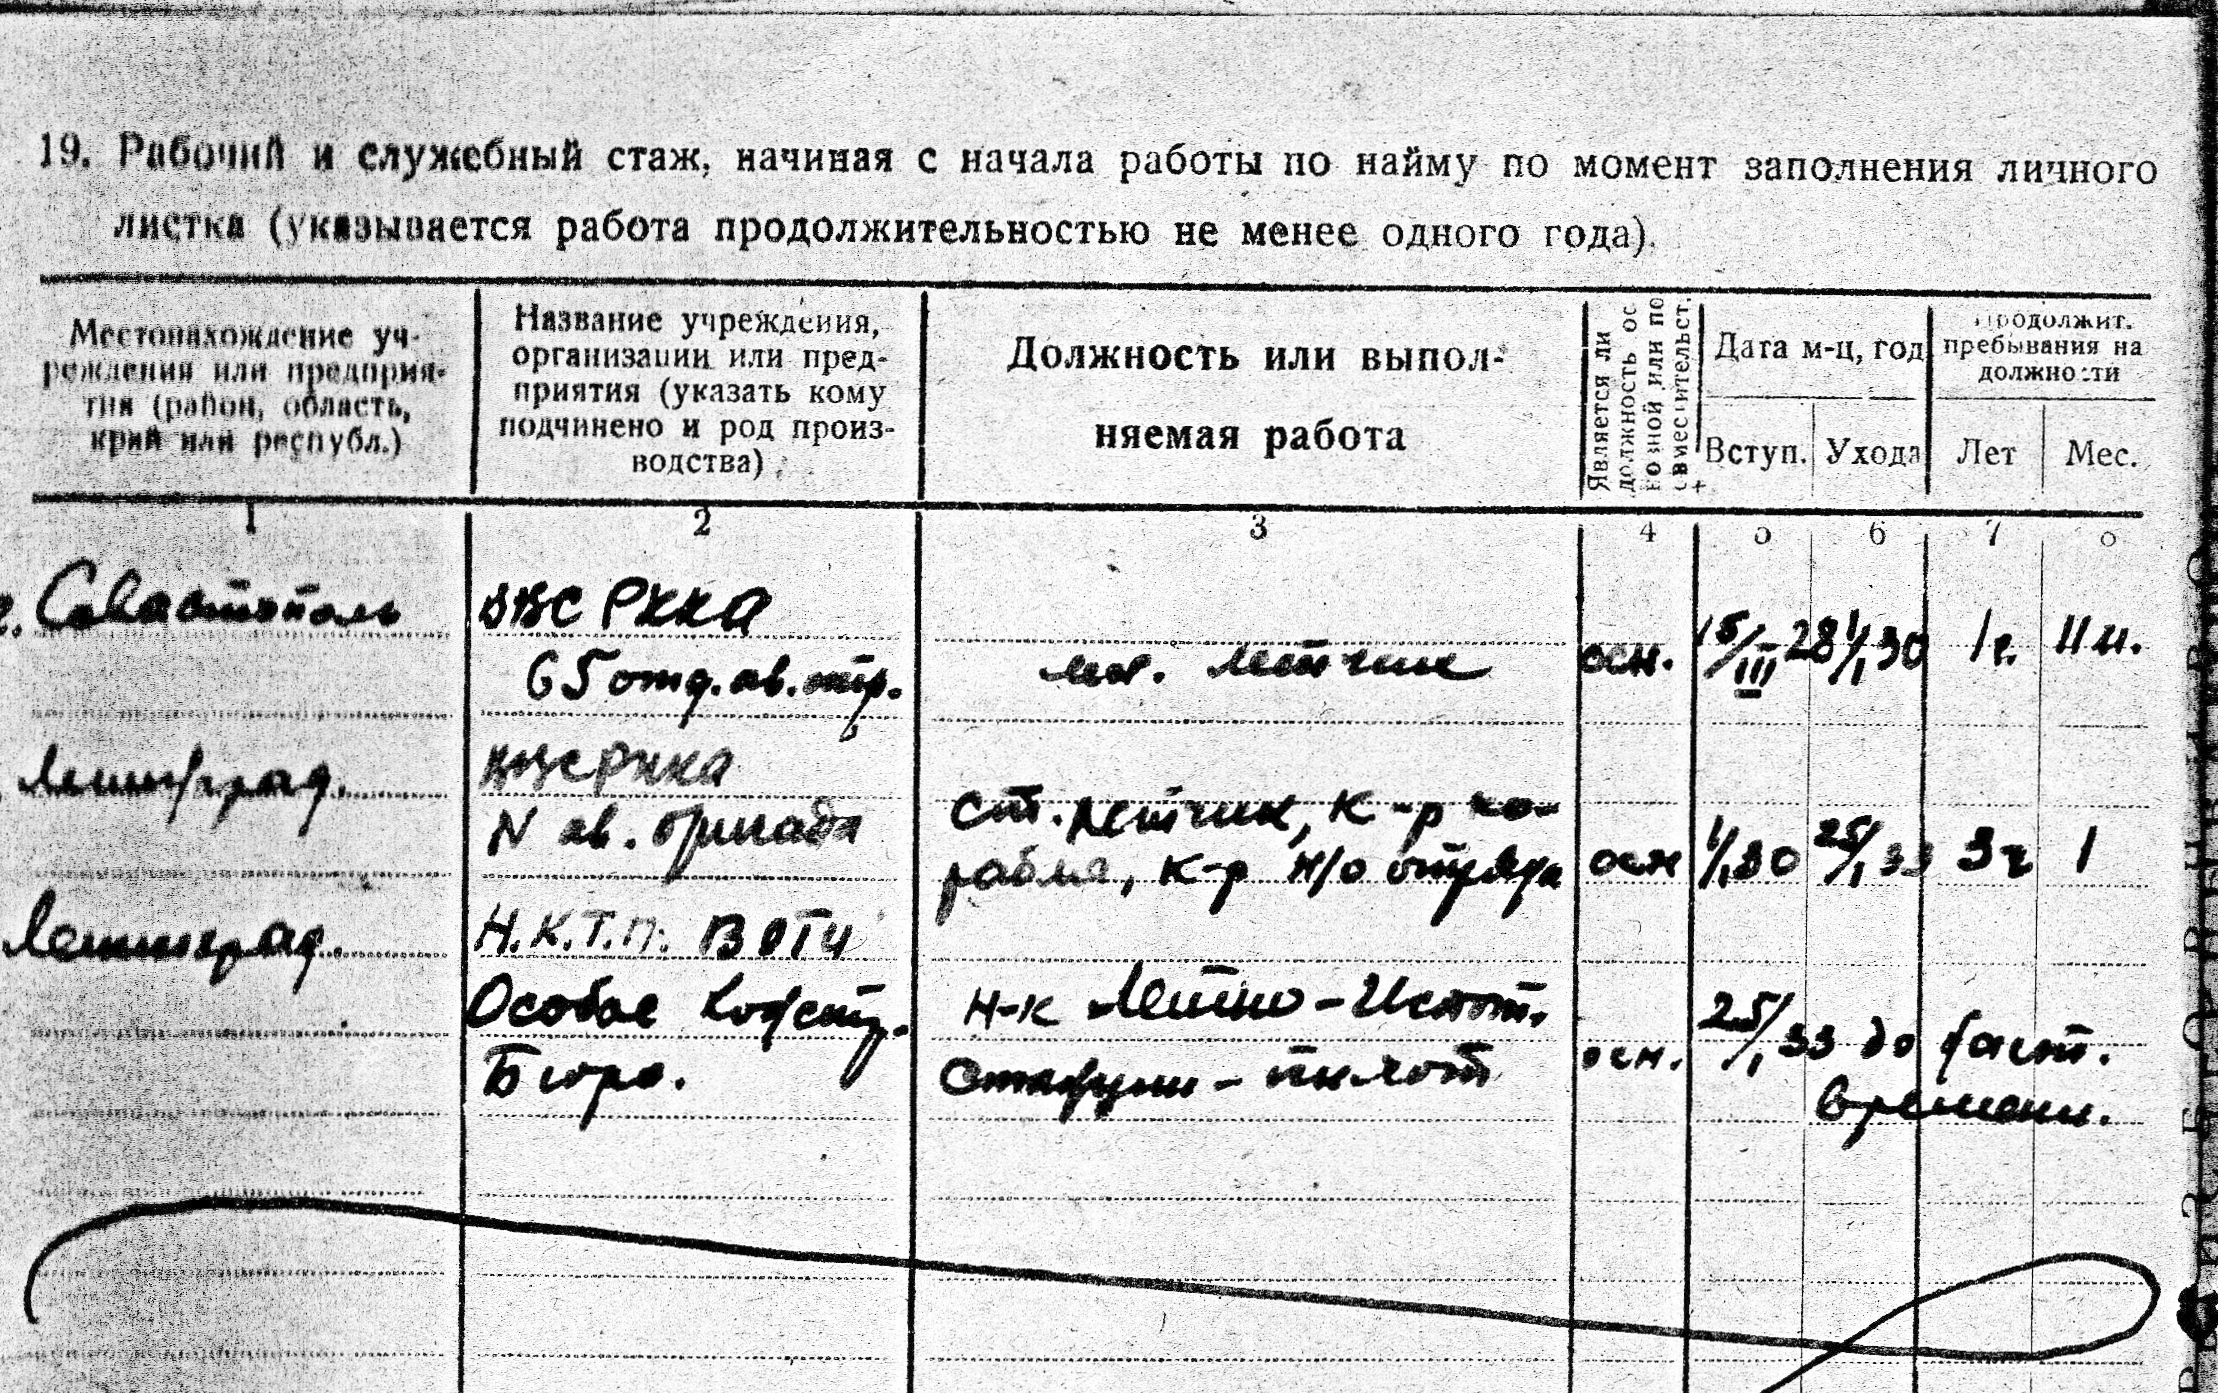 19. Рабочий и служебный стаж, начиная с начала работы по найму по момент заполнения личного
листка (указывается работа продолжительностью не менее одного года).
Местонахождение уч-
реждения или предприя-
тия (район, область,
край или республ.)
Название учреждения,
организации или пред-
приятия (указать кому
подчинено и род произ-
водства)
Должность или выпол-
няемая работа
Является ли
должность ос
новной или по
совместительст.
Дата м-ц, год
Вступ.
Ухода
Продолжит.
пребывания на
должности
Лет
Мес.
1 2 3 4 5 6 7 8
г. Севастополь ВВС РККА
65 отд. ав. отр. мл. летчик осн. 15/III 28 1/I 30 1 г. 11 м.
Ленинград. РККА
N ав. бригада ст. летчик, к-р ко-
рабля, к-р н/о отряда осн 1/I 30 25/I 33 3 г 1
Ленинград. Н.К.Т.П. ВОТИ
Особое Констр. н-к Летно-Испыт.
Бюро. Станции - пилот осн. 25/I 33 до наст.
времени.